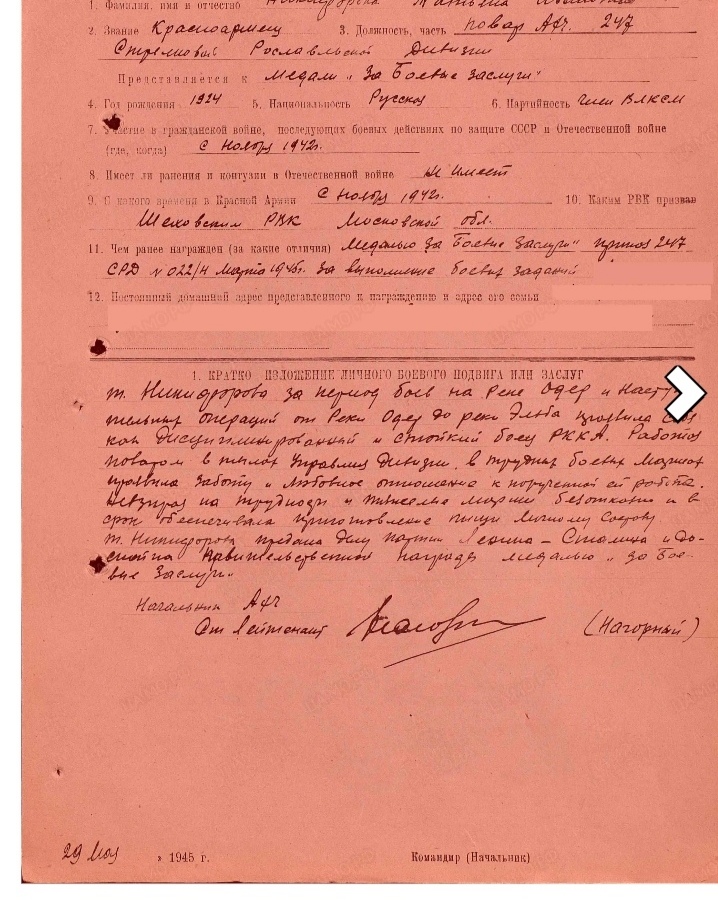 1. Фамилия, имя и отчество Никифорова Татьяна
2. Звание Красноармеец 3. Должность, часть повар АХЧ. 247
Стрелковой Рославльской Дивизии
Представляется к Медали „За Боевые заслуги"
4. Год рождения 1924 5. Национальность Русская 6. Партийность член ВЛКСМ
7. Участие в гражданской войне, последующих боевых действиях по защите СССР и Отечественной войне
(где, когда) С Ноября 1942г.
8. Имеет ли ранения и контузии в Отечественной войне Не имеет
9. С какого времени в Красной Армии С Ноября 1942г. 10. Каким РВК призван
РВК Московской обл.
11. Чем ранее награжден (за какие отличия) Медалью За Боевые Заслуги" приказ 247
СРД N 022/Н Марта 1945г. За выполнение боевых заданий
12. Постоянный домашний адрес представленного к награждению и адрес его семьи
1. КРАТКО ИЗЛОЖЕНИЕ ЛИЧНОГО БОЕВОГО ПОДВИГА ИЛИ ЗАСЛУГ
т. Никифорова за период боев на Реке Одер и
тельных операций от Реки Одер до реки Эльба проявила
как Дисциплинированный и стойкий боец РККА. Работая
поваром в тылах Управлен Дивизии, в трудных боевых
проявила Заботу и Любовное отношение к порученной ей работе.
Невзирая на трудности и тяжелые марши безотказно и в
срок обеспечивала приготовление пищи Личному Составу.
т. Никифорова предана делу партии Ленина – Сталина и до-
стойна правительственной награды медалью „За Бое-
вые Заслуги"
Начальник АХЧ
Ст Лейтенант (Нагорный)
29 Мая » 1945 г. Командир (Начальник)